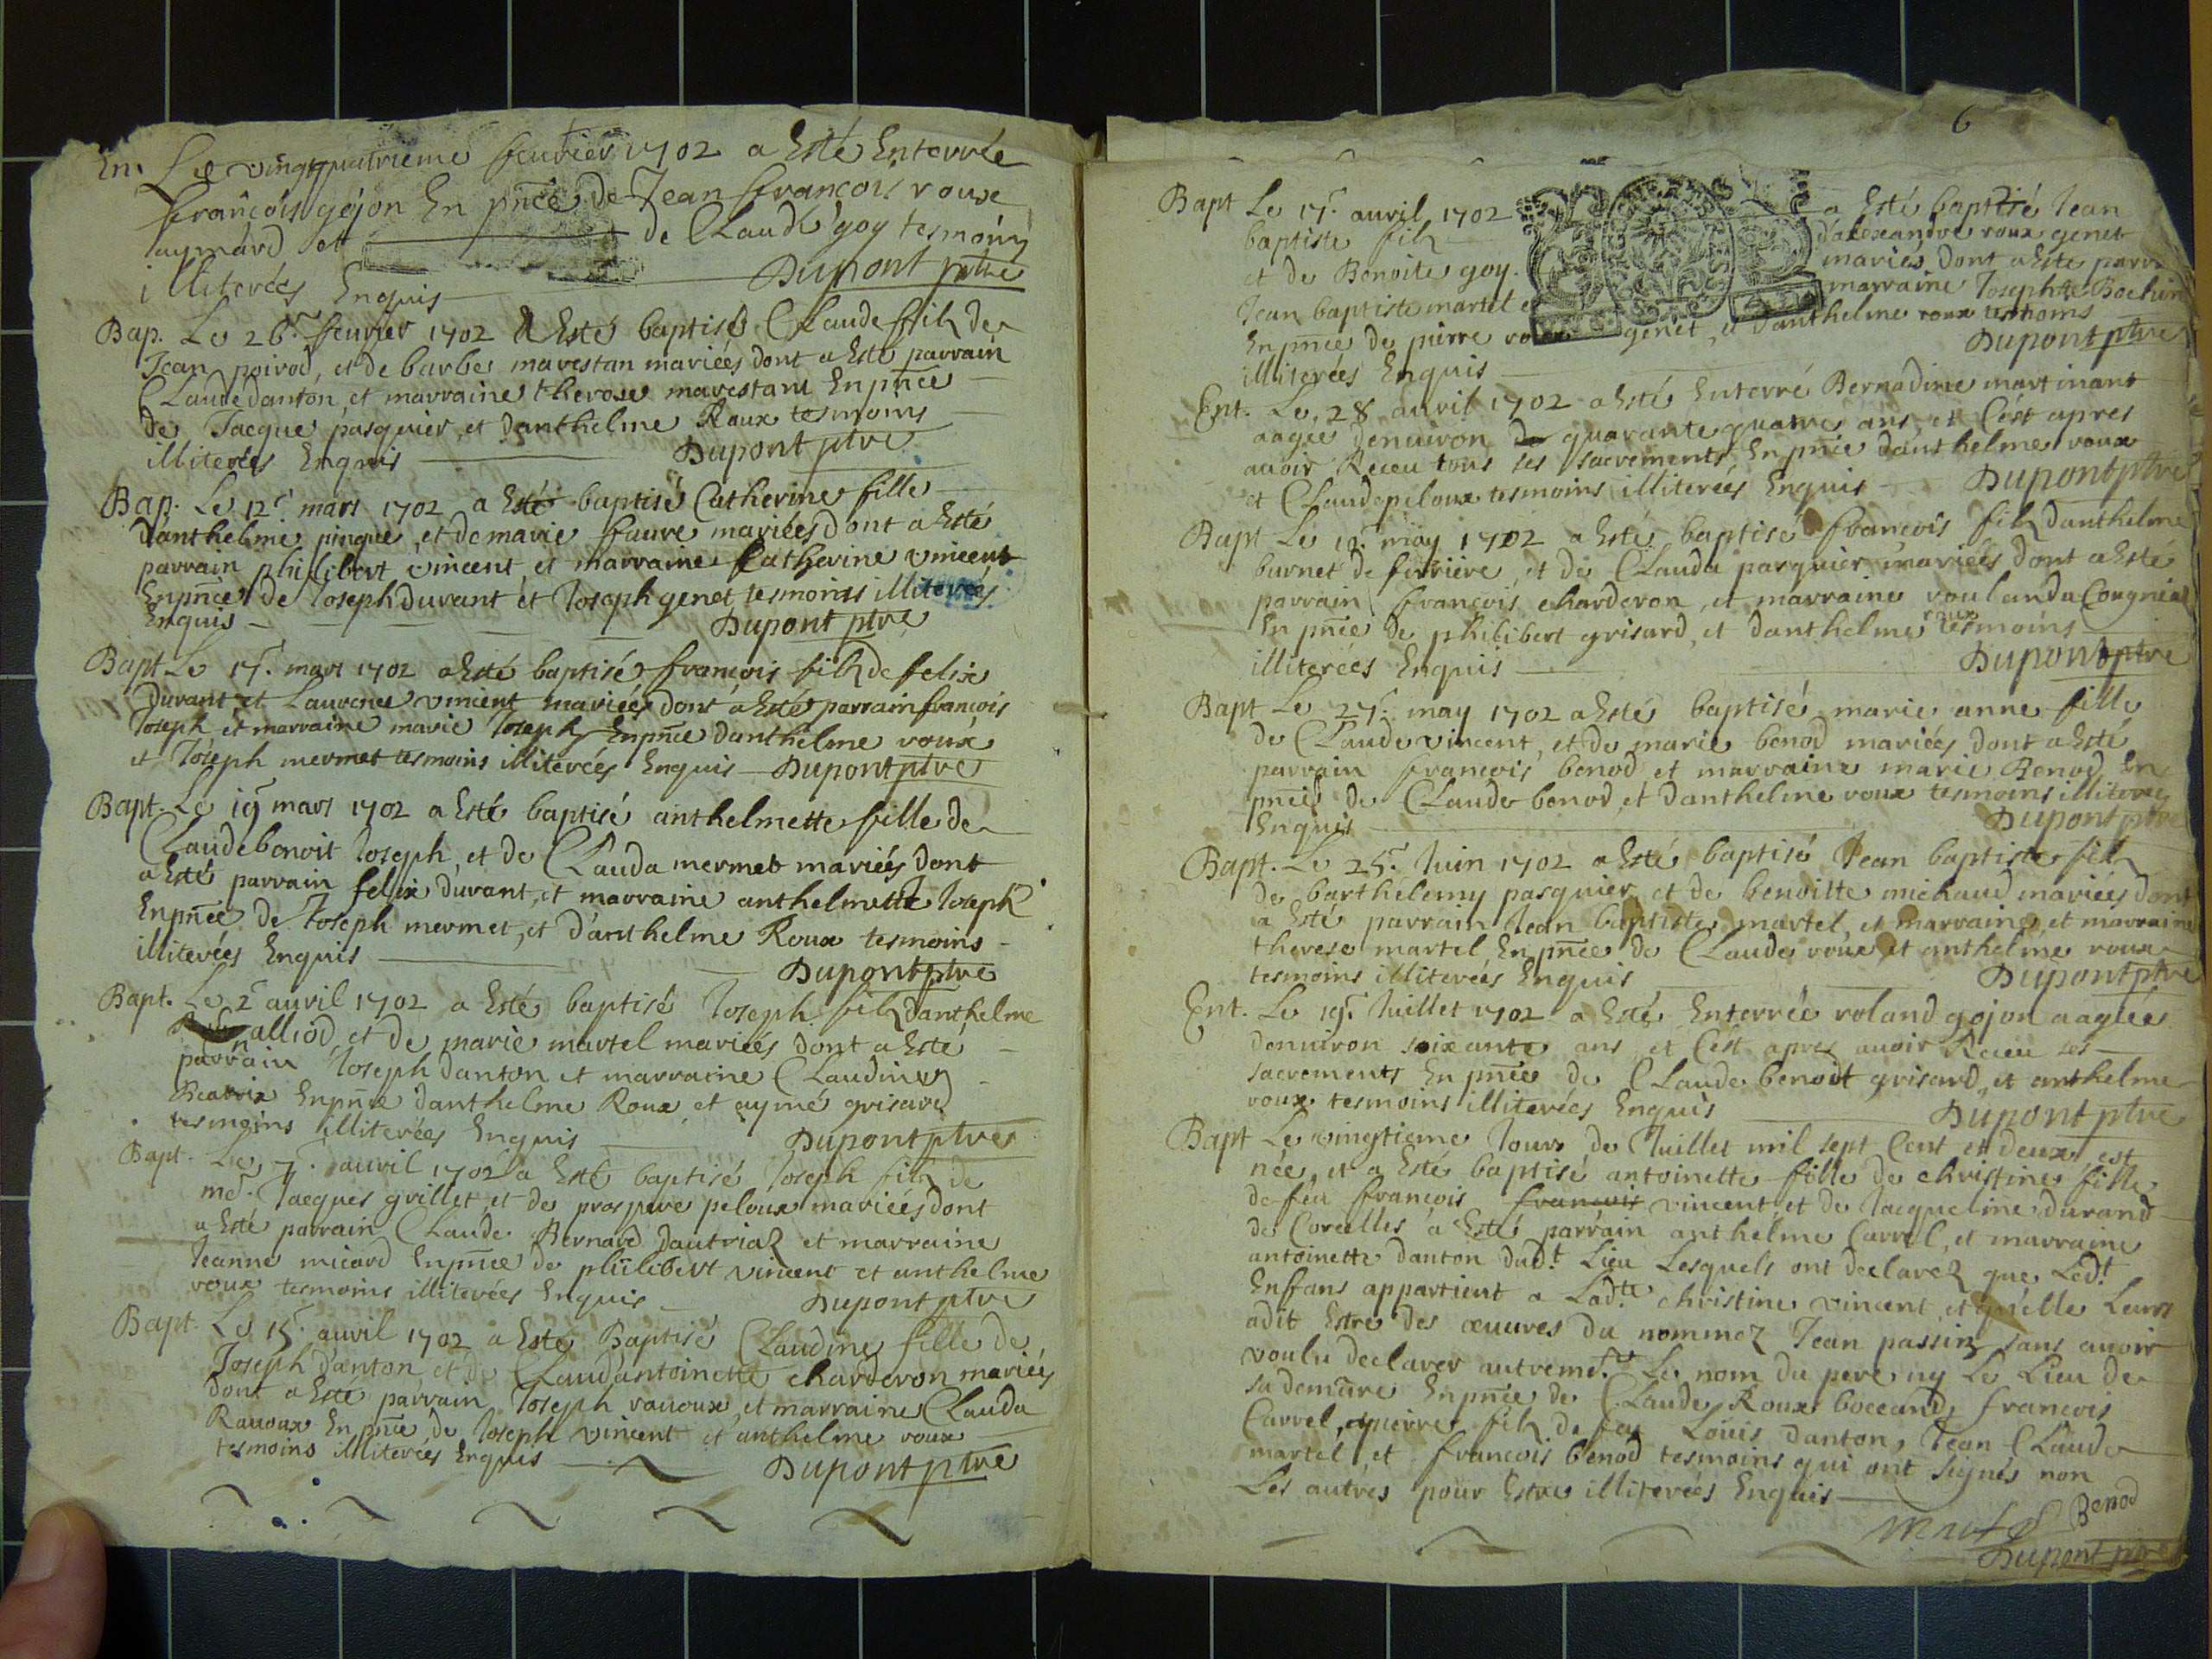 En. Le vingtquatrieme feurier 1702 a Esté Enterrée
françois gojon En pnce de Jean françois roux
aymard et de Claude goy tesmoins
illiterées Enquis Dupont ptre
Bap. Le 26e feurier 1702 a Esté baptisé Claude filz de
Jean poirod, et de barbe marestan mariées dont a Esté parrain
Claude danton et marraine therese marestant Enpnce
de Jacque pasquier, et danthelme Roux tesmoins
illiterées Enquis Dupont ptre
Bap. Le 12e mars 1702 a Esté baptisé Catherine fille
d'anthelme pinque, et de marie faure mariées dont a Esté
parrain philibert vincent et marraine Catherine vincent
Enpnce de Joseph durant et Joseph genet tesmoins illiterées
Enquis Dupont ptre
Bapt Le 17e mars 1702 a Esté baptisé françois filz de felix
Durant et Laurence vincent mariées dont a Esté parrain françois
Joseph et marraine marie Joseph Enpnce danthelme roux
et Joseph mermet tesmoins illiterées Enquis Dupont ptre
Bapt. Le 19e mars 1702 a Esté baptisé anthelmette fille de
Claude benoit Joseph, et de Clauda mermet mariées dont
a Esté parrain felix durant, et marraine anthelmette Joseph
Enpnce de Joseph mermet, et d'anthelme Roux tesmoins
illiterées Enquis Dupont ptre
Bapt. Le 2e auril 1702 a Esté baptisé Joseph filz danthelme
alliod et de marie martel mariées dont a Esté
parrain Joseph danton et marraine Claudine
Beatrix Enpnce danthelme Roux et aymé grisard
tesmoins illiterées Enquis Dupont ptre
Bapt. Le 7e auril 1702 a Esté baptisé Joseph filz de
me. Jacques grillet, et de prospere peloux mariées dont
a Esté parrain Claude Bernard dautriaz et marraine
Jeanne micard Enpnce de philibert vincent et anthelme
roux tesmoins illiterées Enquis Dupont ptre
Bapt. Le 15e auril 1702 a Esté Baptisé Claudine fille de
Joseph danton et de Claud'antoinette charderon mariées
dont a Esté parrain Joseph rauoux, et marraine Clauda
Rauoux Enpnce de Joseph vincent et anthelme roux
tesmoins illiterées Enquis Dupont ptre
6
Bapt Le 17e auril 1702 a Esté baptisé Jean
baptiste filz d'alexandre roux genet
et de Benoite goy mariés dont a Esté parrain
Jean baptiste martel et marraine Josephte
Enpnce de pierre roux genet, et danthelme roux tesmoins
illiterées Enquis Dupont ptre
Ent. Le 28 auril 1702 a Esté Enterré Bernadine martinant
aagée denuiron de quarante quatre ans, et C'est apres
auoir Receu tous ses sacrements Enpnce danthelme roux
et Claude peloux tesmoins illiterées Enquis Dupont ptre
Bapt Le may 1702 a Esté baptisé françois filz danthelme
burnet de ferriere, et de Clauda pasquier mariées dont a Esté
parrain françois charderon, et marraine roulanda
En pnce de philibert grisard, et danthelme roux tesmoins
illiterées Enquis Dupont ptre
Bapt Le 27e may 1702 a Esté baptisé marie anne fille
de Claude vincent, et de marie benod mariées dont a Esté
parrain françois benod et marraine marie Benod En
pnce de Claude benod et danthelme roux tesmoins illiterées
Enquis Dupont ptre
Bapt. Le 25e Juin 1702 a Esté baptisé Jean baptiste filz
de barthélemy pasquier et de benoitte michaud mariées dont
a Esté parrain Jean baptiste martel, et marraine et marraine
therese martel, Enpnce de Claude roux et anthelme roux
tesmoins illiterées Enquis Dupont ptre
Ent. Le 19e Juillet 1702 a Esté Enterrée roland gojon aagées
denuiron soixante ans, et C'est apres auoir Receu ses
sacrements En pnce de Claude benoit grisard, et anthelme
roux tesmoins illiterées Enquis Dupont ptre
Bapt Le vingtieme Jours de Juillet mil sept Cent et deux est
née, et a Esté baptisé antoinette fille de christine fille
de feu françois françois vincent et de Jacqueline durand
de Corcelles a Esté parrain anthelme Carrel, et marraine
antoinette danton dudt Lieu Lesquels ont declarez que Ledt
Enfans appartient a Ladte christine vincent et qu'elle Leurs
adit Estre des œuures du nommez Jean passin sans auoir
voulu declarer autremt Le nom du pere ny Le Lieu de
sa demure Enpnce de Claude Roux boccand, françois
Carrel, pierre filz de feu Louis danton, Jean Claude
martel, et françois benod tesmoins qui ont signés non
Les autres pour Estre illiterées Enquis
Benod
Dupont ptre